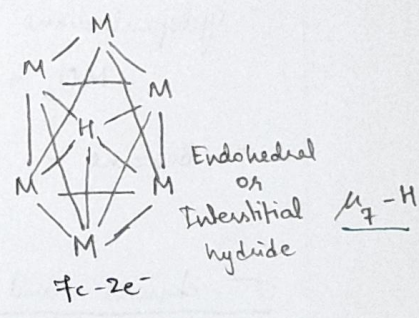 M
M
M
H
M
M
M
7c-2e⁻
Endohedral
or
Interstitial
hydride
μ₇-H